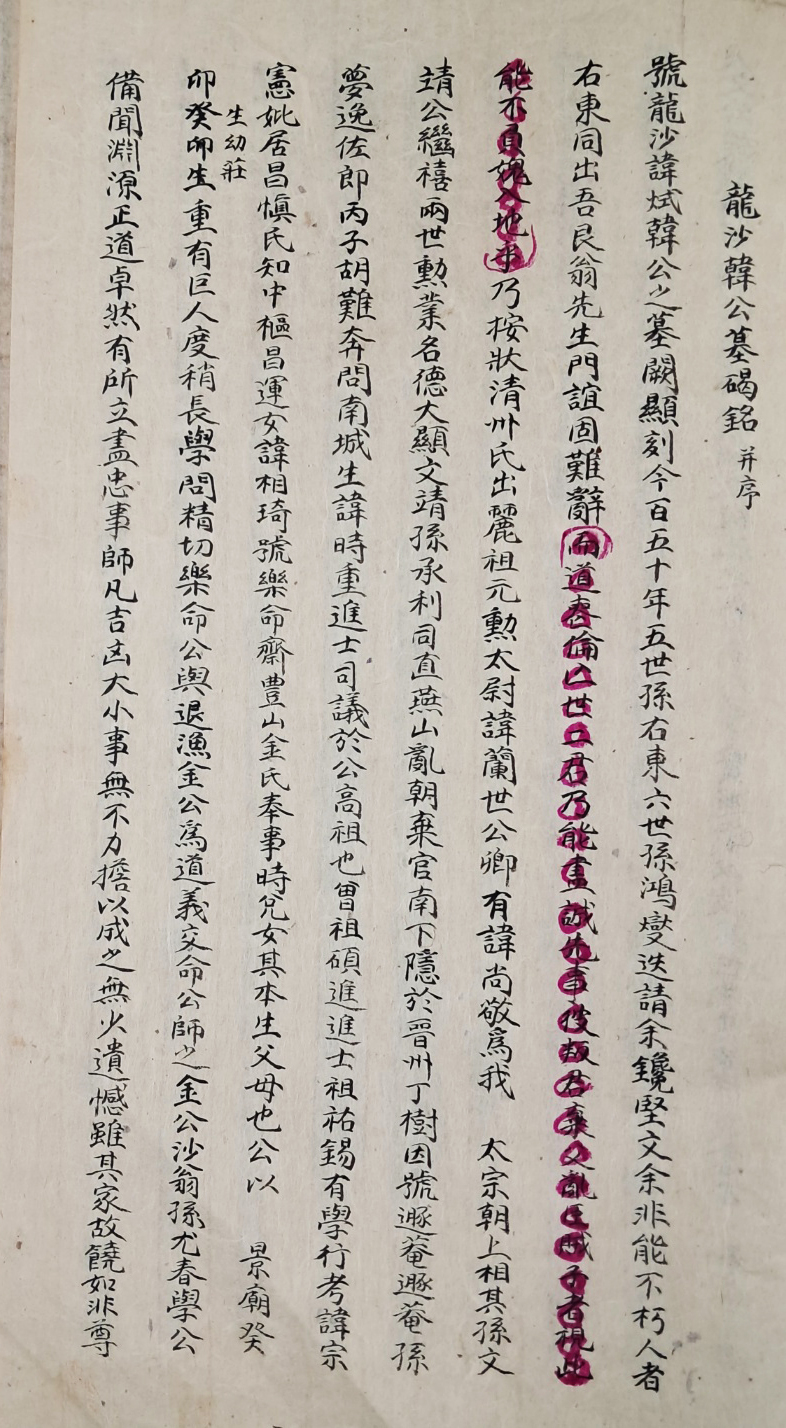 龍沙韓公墓碣銘 并序
號龍沙諱烒韓公之墓闕顯刻今百五十年五世孫右東六世孫鴻燮迭請余鑱堅文余非能不朽人者
右東同出吾艮翁先生門誼固難辭而道喪倫亡世二君乃能盡誠先事彼叛君棄父亂臣賊子者視此
能不負愧入地乎乃按狀清州氏出麗祖元勳太尉諱蘭世公卿有諱尚敬爲我 太宗朝上相其孫文
靖公繼禧兩世勲業名德大顯文靖孫承利司直燕山亂朝棄官南下隱於晉州丁樹因號遯菴遯菴孫
夢逸佐郎丙子胡難奔問南城生諱時重進士司議於公高祖也曾祖碩進進士祖祐錫有學行考諱宗
憲妣居昌愼氏知中樞昌運女諱相琦號樂命齋豊山金氏奉事時兌女其本生父母也公以 景廟癸
卯癸卯生重有巨人度稍長學問精切樂命公與退漁金公爲道義交命公師之金公沙翁孫尤春學公
生幼莊
備聞淵源正道卓然有所立盡忠事師凡吉凶大小事無不力擔以成之無少遺憾雖其家故饒如非尊